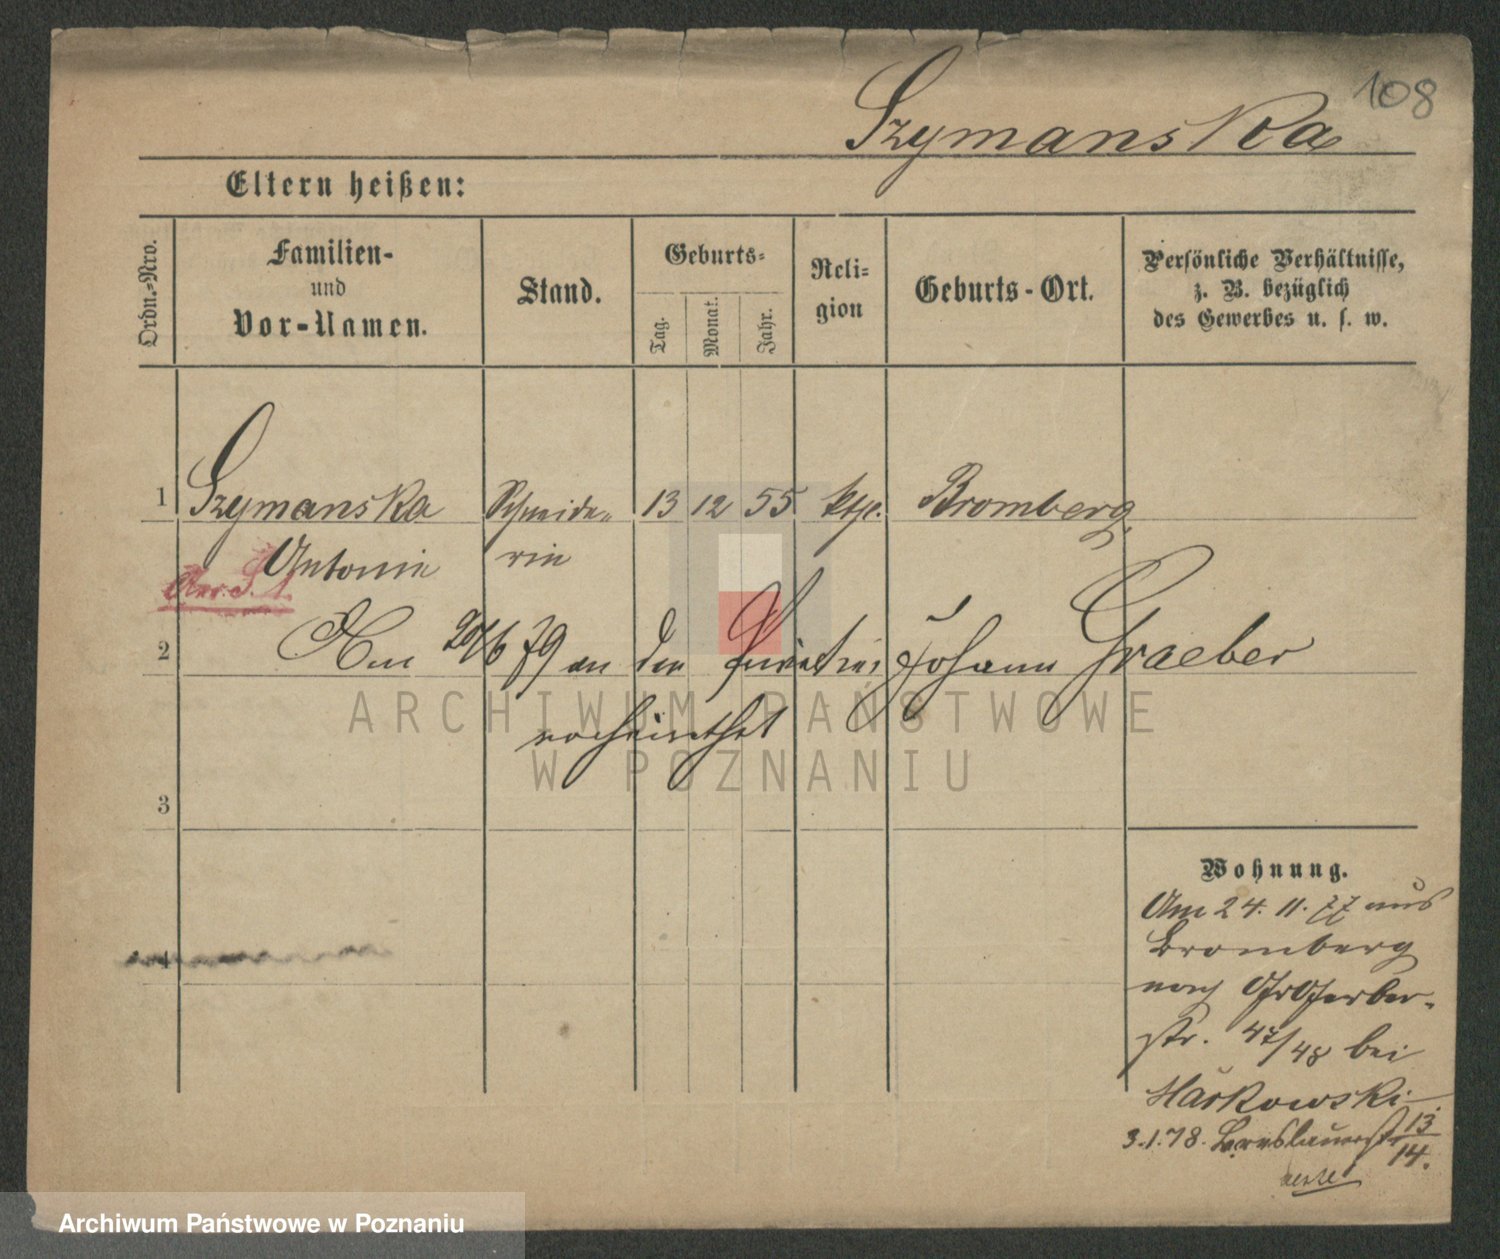 108
Szymanska
Eltern heißen:
Ordn.-Nro.
Familien-
und
Vor-Namen.
Stand.
Geburts-
Tag.
Monat.
Jahr.
Reli-
gion
Geburts-Ort.
Persönliche Verhältnisse,
z. B. bezüglich
des Gewerbes u. s. w.
1 Szymanska Schneide- 13 12 55 kth. Bromberg
Antonie rin
2 Am 20/6 79 an den Johann Graeber
verheirathet
3
4
Wohnung.
Am 24. 11. 77 aus
Bromberg
nach Gr Gerber-
str. 47/48 bei
Markowski
3.1.78. Breslauerstr 13/14.
ARCHIWUM PAŃSTWOWE
W POZNANIU
Archiwum Państwowe w Poznaniu